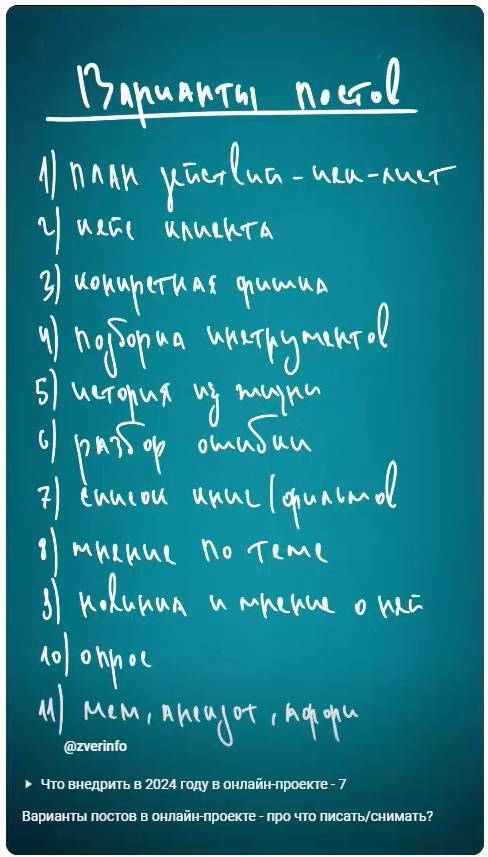 Варианты постов
1) план действий - чек-лист
2) кейс клиента
3) конкретная фишка
4) подборка инструментов
5) история из жизни
6) разбор ошибки
7) список книг/фильмов
8) мнение по теме
9) новинка и мнение о ней
10) опрос
11) мем, анекдот,
@zverinfo
Что внедрить в 2024 году в онлайн-проекте - 7
Варианты постов в онлайн-проекте - про что писать/снимать?